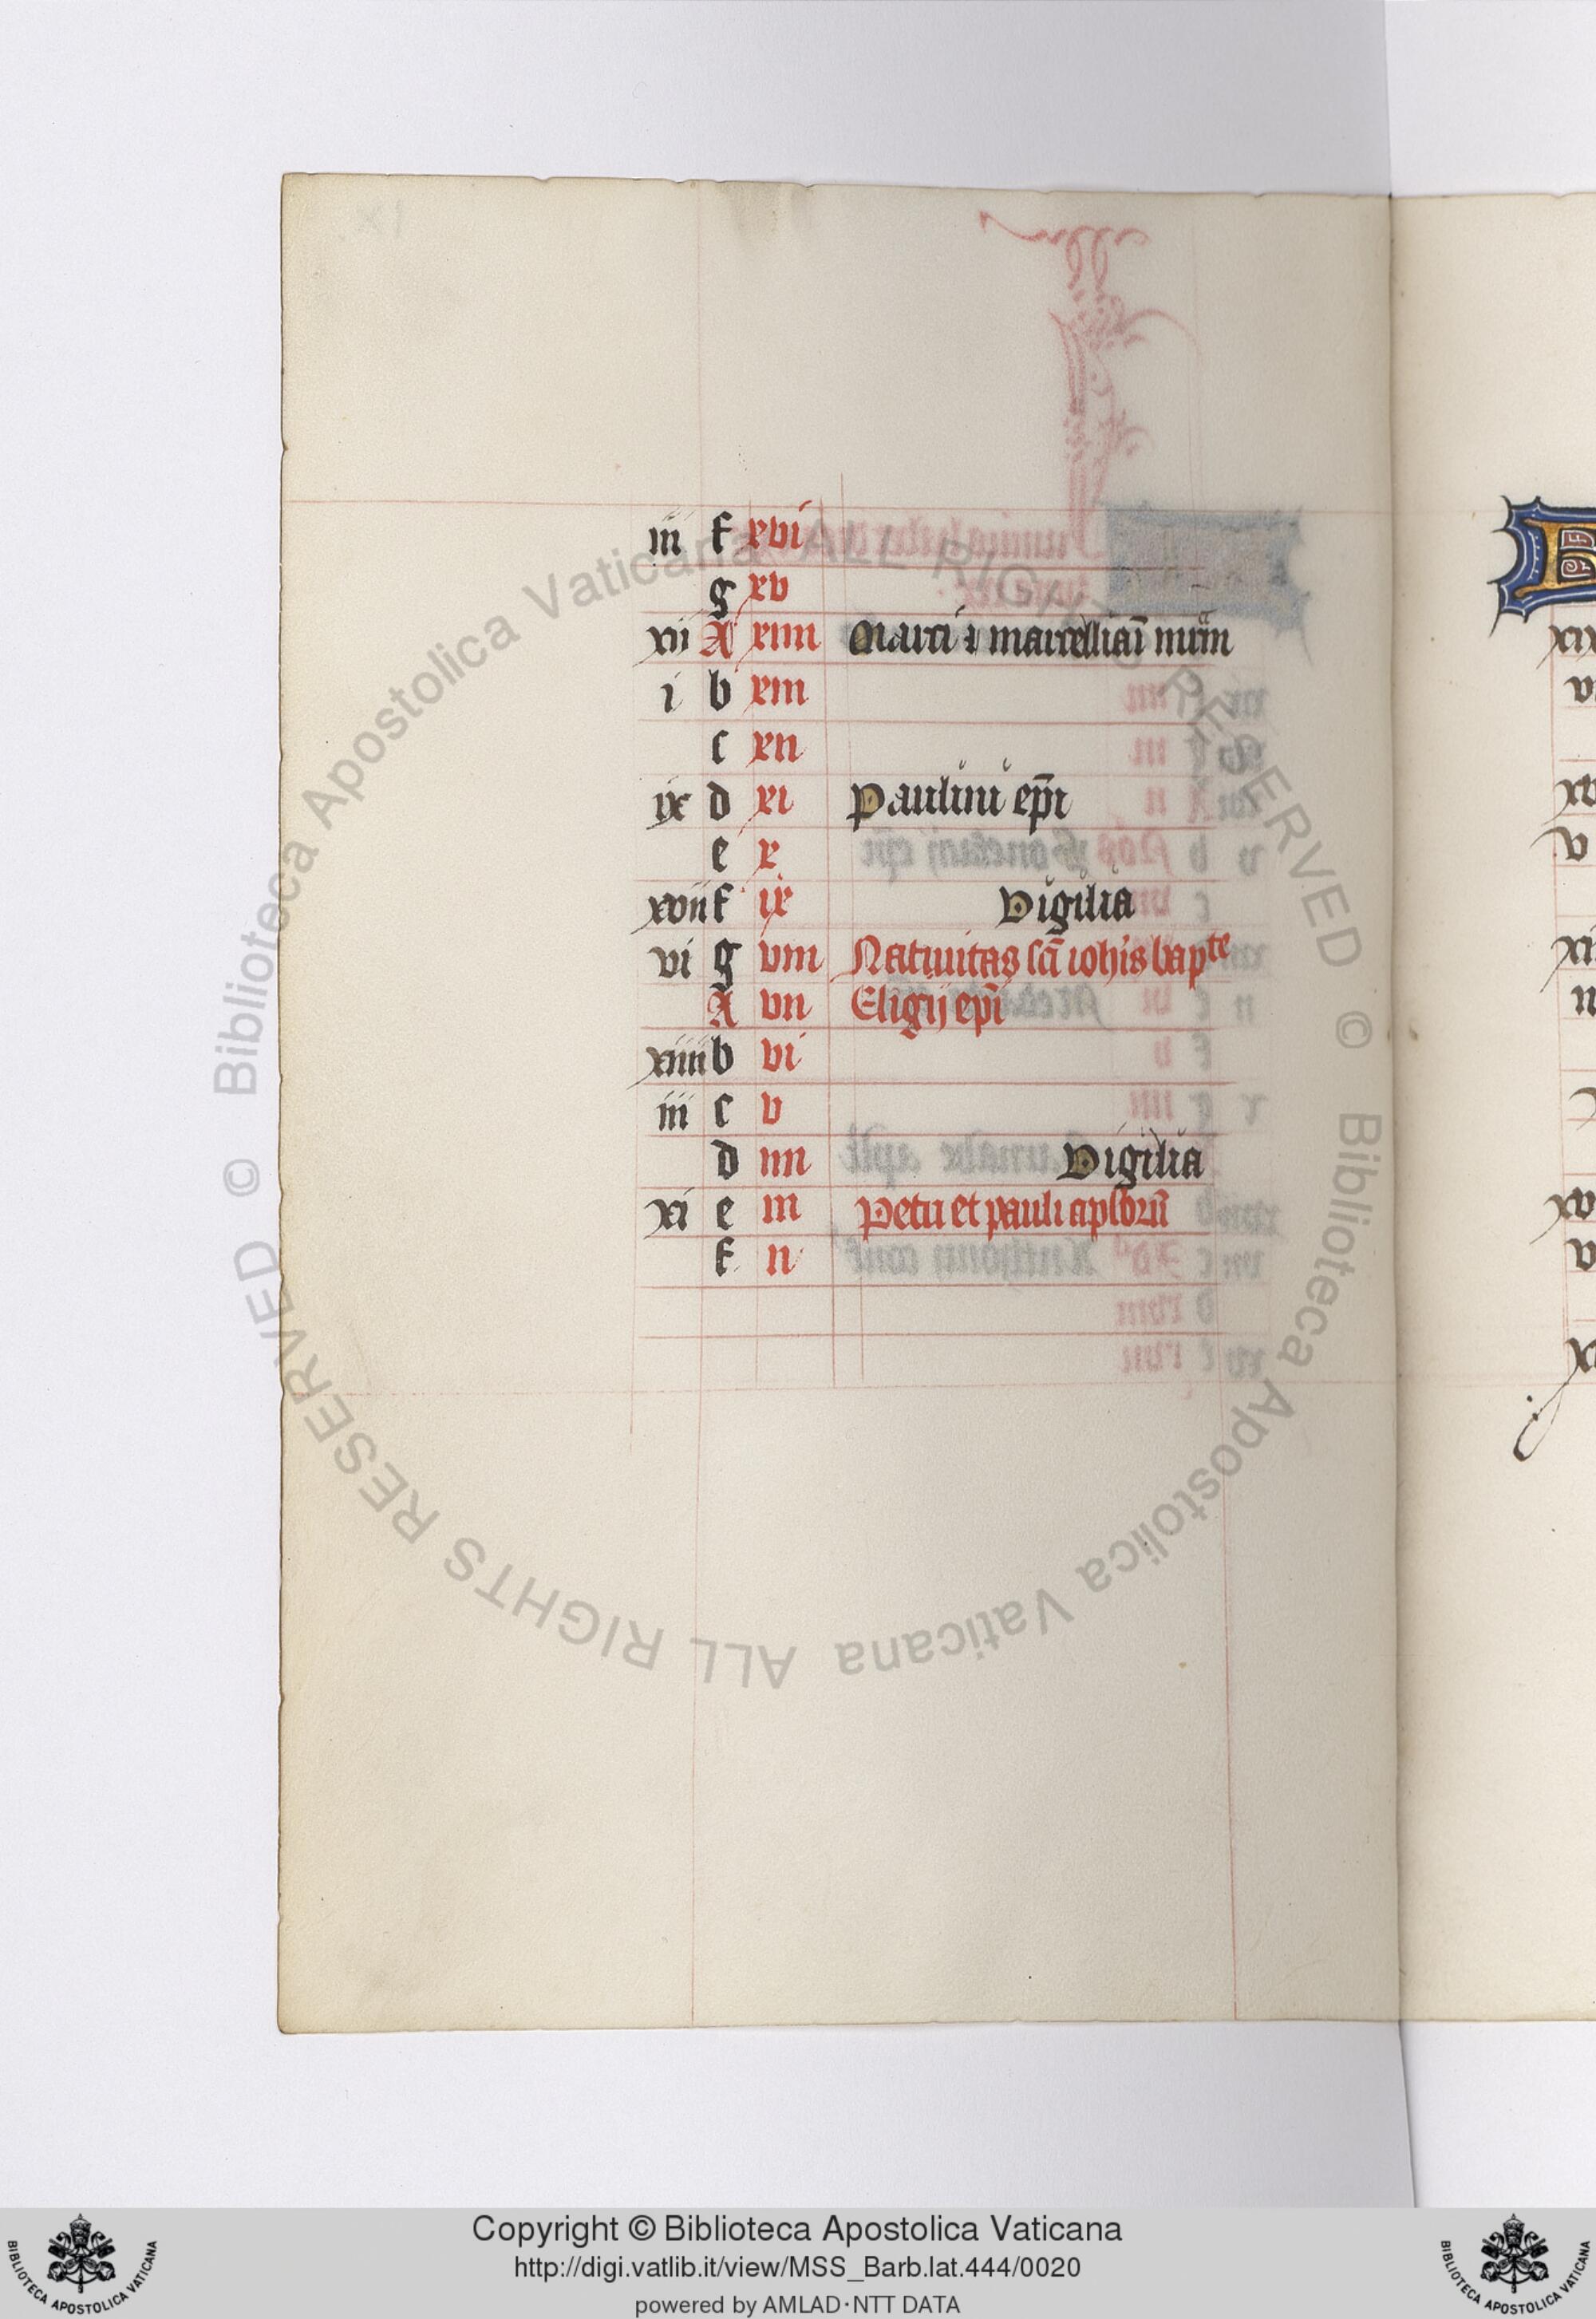 iii f xvi
g xv
xii A xiiii Marci ⁊ marcelliaī mr̄m
i b xiii
c xii
ix d xi Paulini ep̄i
e x
xvii f ix Vigilia
vi g viii Natiuitas sc̄i ioh̄is bapte
A vii Eligij ep̄i
xiiii b vi
iii c v
d iiii Vigilia
xi e iii Petri et pauli aplorū
f ii
© Biblioteca Apostolica Vaticana ALL RIGHTS RESERVED © Biblioteca Apostolica Vaticana ALL RIGHTS RESERVED
Copyright © Biblioteca Apostolica Vaticana
http://digi.vatlib.it/view/MSS_Barb.lat.444/0020
powered by AMLAD·NTT DATA
BIBLIOTECA APOSTOLICA VATICANA
BIBLIOTECA APOSTOLICA VATICANA